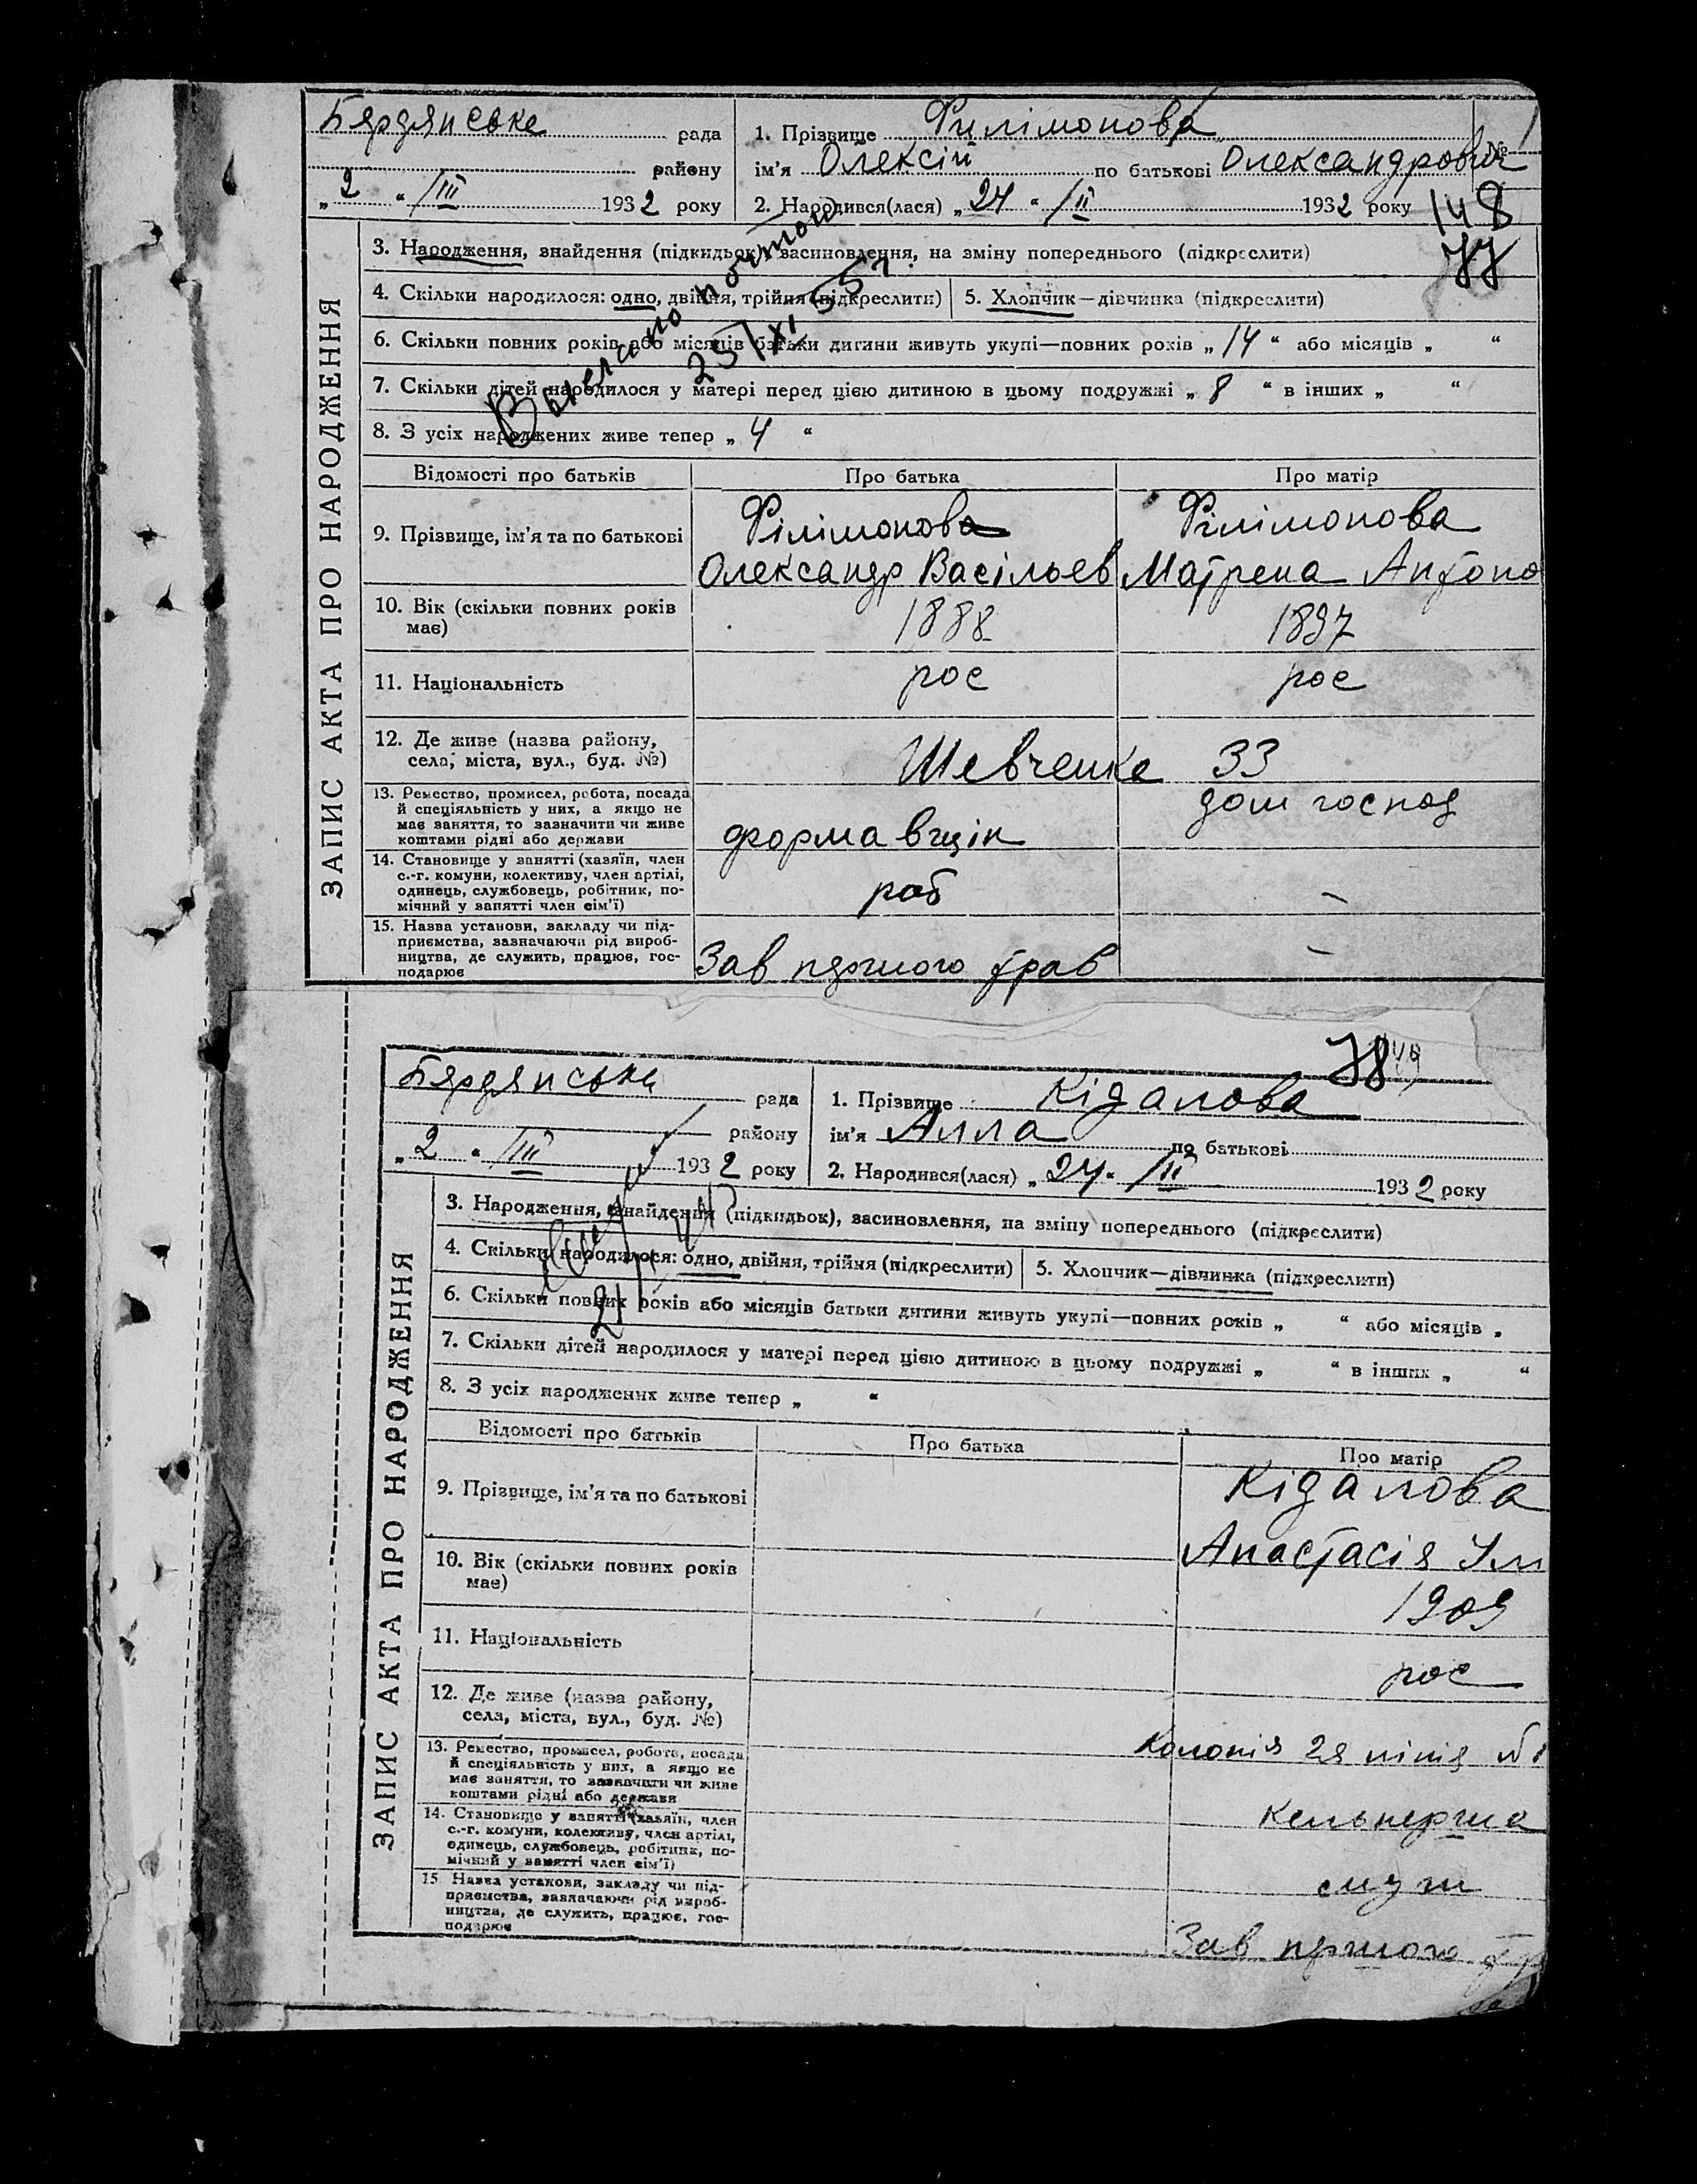 Бярдянське рада
району
„ 2 “ /III 1932 року
1. Прізвище Филімонова
№
ім’я Олексій по батькові Олександрович
2. Народився(лася) „ 24 “ /II 1932 року
148
77
ЗАПИС АКТА ПРО НАРОДЖЕННЯ
3. Народження, знайдення (підкидьок), засиновлення, на зміну попереднього (підкреслити)
4. Скільки народилося: одно, двійня, трійня (підкреслити) 5. Хлопчик—дівчинка (підкреслити)
6. Скільки повних років або місяців батьки дитини живуть укупі—повних років „ 14 “ або місяців „ “
7. Скільки дітей народилося у матері перед цією дитиною в цьому подружжі „ 8 “ в інших „ “
8. З усіх народжених живе тепер „ 4 “
почтою
25/XI 55 г.
Відомості про батьків Про батька Про матір
9. Прізвище, ім’я та по батькові
Філімонова
Олександр Васільев
Філімонова
Матрена Антоно
10. Вік (скільки повних років
має)
1888 1897
11. Національність рос рос
12. Де живе (назва району,
села, міста, вул., буд. №)
Шевченке 33
13. Ремество, промисел, робота, посада
й спеціяльність у них, а якщо не
має заняття, то зазначити чи живе
коштами рідні або держави
формавщік
дом господ
14. Становище у занятті (хазяїн, член
с.-г. комуни, колективу, член артілі,
одинець, службовець, робітник, по-
мічний у занятті член сім’ї)
роб –
15. Назва установи, закладу чи під-
приємства, зазначаючи рід вироб-
ництва, де служить, працює, гос-
подарює
Зав першого трав –
78
Бярдянське рада
району
„ 2 “ /III 1932 року
1. Прізвище Кідалова
ім’я Алла по батькові
2. Народився(лася) „ 24 “ /II 1932 року
ЗАПИС АКТА ПРО НАРОДЖЕННЯ
3. Народження, знайдення (підкидьок), засиновлення, на зміну попереднього (підкреслити)
4. Скільки народилося: одно, двійня, трійня (підкреслити) 5. Хлопчик—дівчинка (підкреслити)
6. Скільки повних років або місяців батьки дитини живуть укупі—повних років „ “ або місяців „
7. Скільки дітей народилося у матері перед цією дитиною в цьому подружжі „ “ в інших „ “
8. З усіх народжених живе тепер „ “
Відомості про батьків Про батька Про матір
9. Прізвище, ім’я та по батькові
Кідалова
Анастасія
10. Вік (скільки повних років
має)
1909
11. Національність
рос
12. Де живе (назва району,
села, міста, вул., буд. №)
Колонія 2я лінія №
13. Ремество, промисел, робота, посада
й спеціяльність у них, а якщо не
має заняття, то зазначити чи живе
коштами рідні або держави
Кельнерша
14. Становище у занятті (хазяїн, член
с.-г. комуни, колективу, член артілі,
одинець, службовець, робітник, по-
мічний у занятті член сім’ї)
служ
15. Назва установи, закладу чи під-
приємства, зазначаючи рід вироб-
ництва, де служить, працює, гос-
подарює
Зав першого